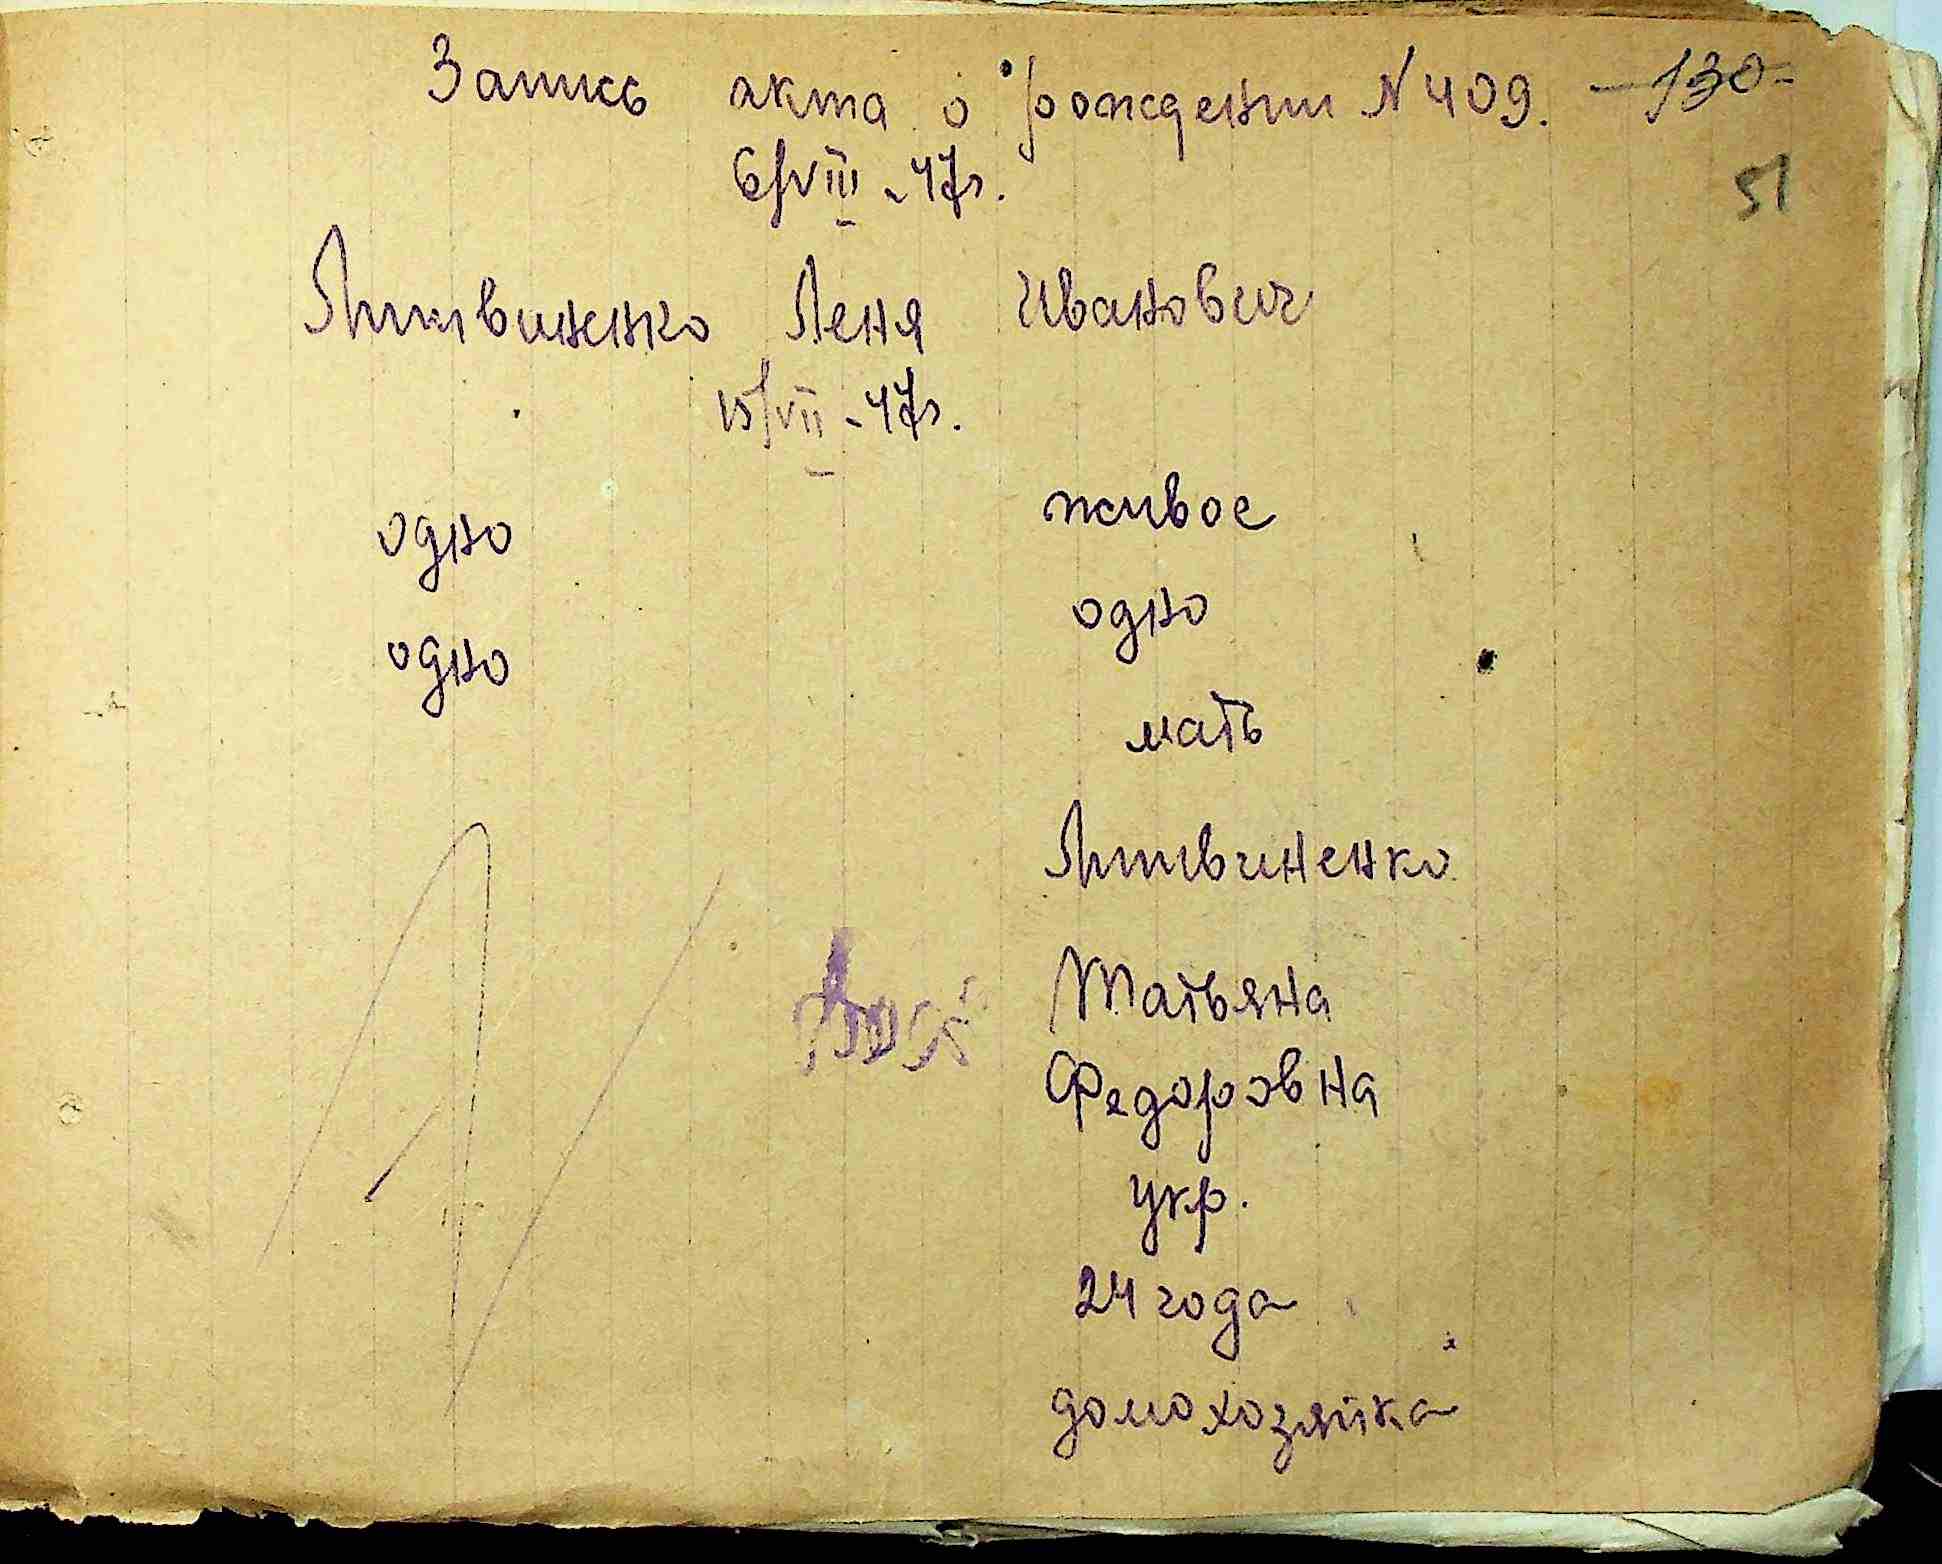 Запись акта о рождении N 409. -130-
6/VIII - 47г.
51
Литвиненко Леня Иванович
15/VII - 47г.
одно живое
одно одно
мать
Литвиненко
Татьяна
Федоровна
укр.
24 года
домохозяйка